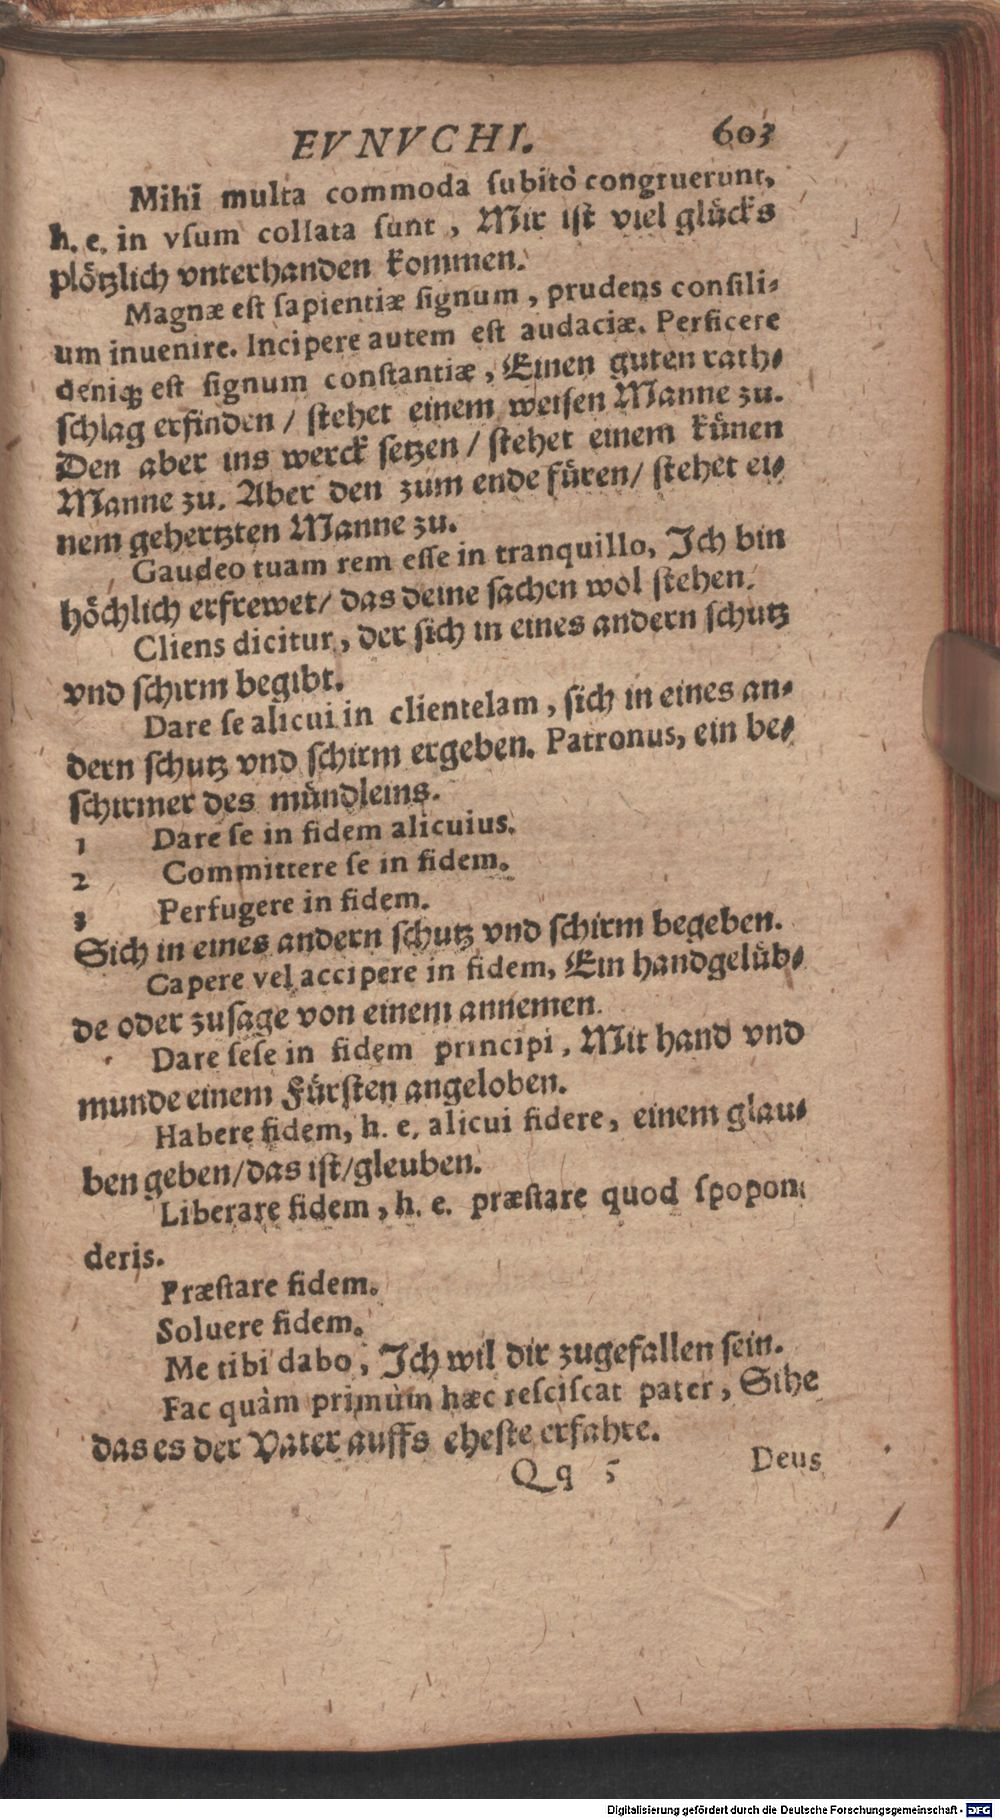 EVNVCHI. 603
Mihi multa commoda ſubitò congruerunt,
h. e. in vſum collata ſunt, Mir iſt viel glücks
plötzlich vnterhanden kommen.
Magnæ eſt ſapientiæ ſignum, prudens conſili-
um inuenire. Incipere autem eſt audaciæ. Perficere
deniq; eſt ſignum conſtantiæ, Einen guten rath-
ſchlag erfinden / ſtehet einem weiſen Manne zu.
Den aber ins werck ſetzen / ſtehet einem künen
Manne zu. Aber den zum ende füren / ſtehet ei-
nem gehertzten Manne zu.
Gaudeo tuam rem eſſe in tranquillo, Ich bin
höchlich erfrewet / das deine ſachen wol ſtehen.
Cliens dicitur, der ſich in eines andern ſchutz
vnd ſchirm begibt.
Dare ſe alicui in clientelam, ſich in eines an-
dern ſchutz vnd ſchirm ergeben. Patronus, ein be-
ſchirmer des mündleins.
1 Dare ſe in fidem alicuius.
2 Committere ſe in fidem.
3 Perfugere in fidem.
Sich in eines andern ſchutz vnd ſchirm begeben.
Capere vel accipere in fidem, Ein handgelüb-
de oder zuſage von einem annemen.
Dare ſeſe in fidem principi, Mit hand vnd
munde einem Fürſten angeloben.
Habere fidem, h. e. alicui fidere, einem glau-
ben geben / das iſt / gleuben.
Liberare fidem, h. e. præſtare quod ſpopon-
deris.
Præſtare fidem.
Soluere fidem.
Me tibi dabo, Ich wil dir zugefallen ſein.
Fac quàm primùm hæc reſciſcat pater, Sihe
das es der Vater auffs eheſte erfahre.
Qq 5 Deus
Digitalisierung gefördert durch die Deutsche Forschungsgemeinschaft - DFG